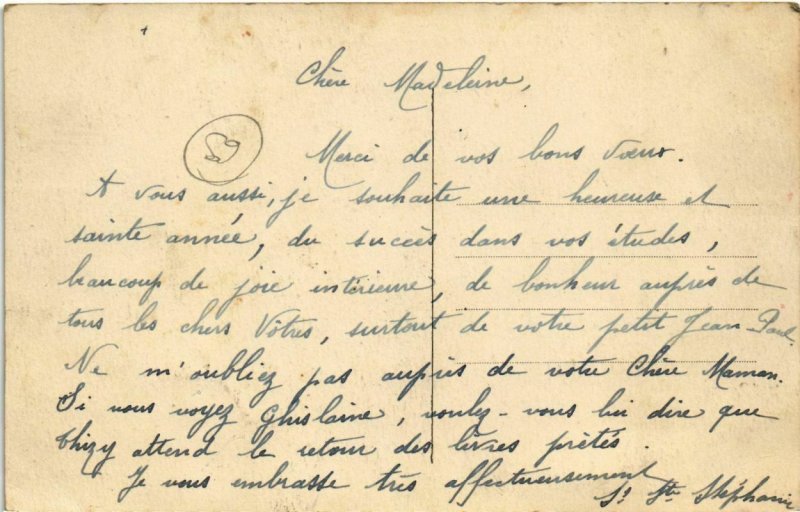 Chère Madeleine,
Merci de vos bons vœux.
A vous aussi, je souhaite une heureuse et
sainte année, du succès dans vos études,
beaucoup de joie intérieure, de bonheur auprès de
tous les chers Vôtres, surtout de votre petit Jean-Paul.
Ne m'oubliez pas auprès de votre Chère Maman.
Si vous voyez Ghislaine, voulez-vous lui dire que
Thizy attend le retour des livres prêtés.
Je vous embrasse très affectueusement
Sr Ste Stéphanie